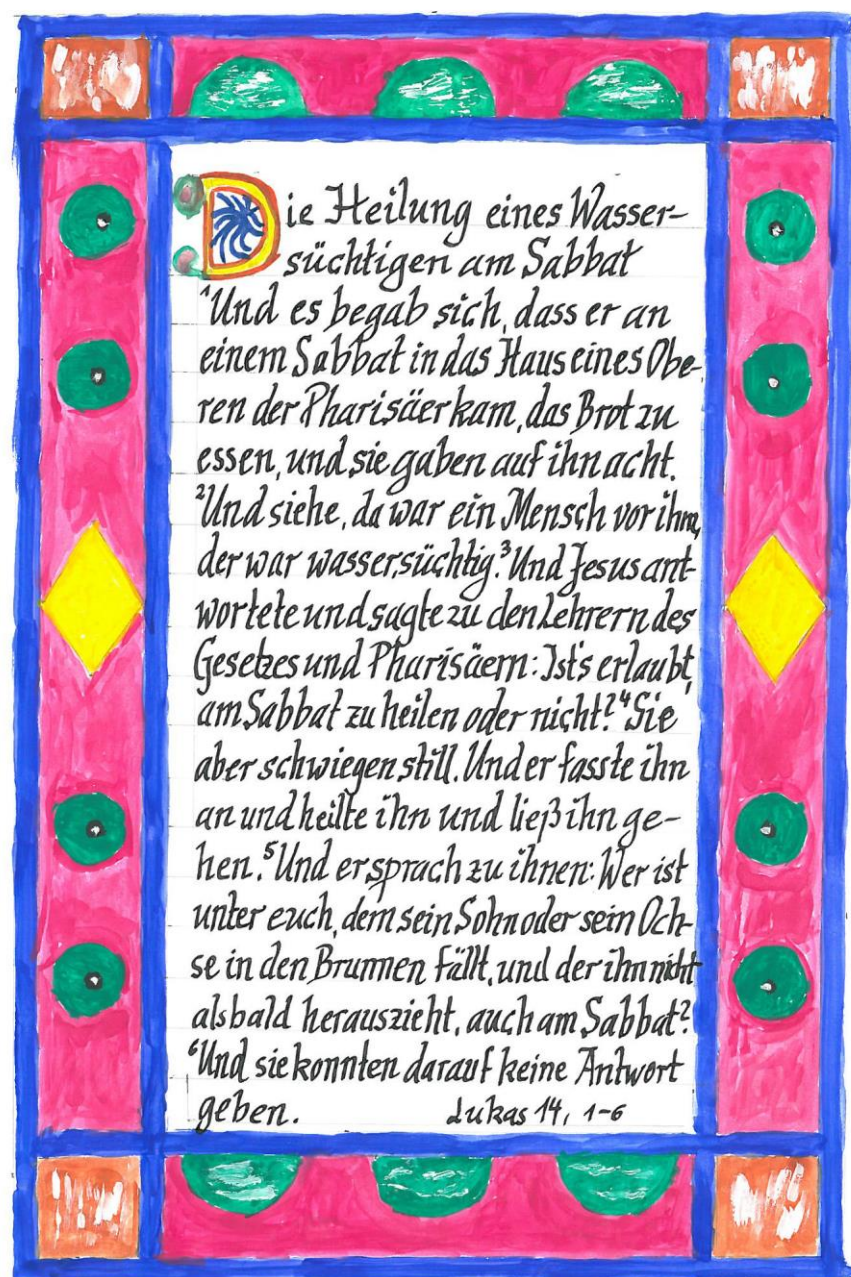 Die Heilung eines Wasser-
süchtigen am Sabbat
¹Und es begab sich, dass er an
einem Sabbat in das Haus eines Obe-
ren der Pharisäer kam, das Brot zu
essen, und sie gaben auf ihn acht.
²Und siehe, da war ein Mensch vor ihm,
der war wassersüchtig.³Und Jesus ant-
wortete und sagte zu den Lehrern des
Gesetzes und Pharisäern: Ist's erlaubt,
am Sabbat zu heilen oder nicht?⁴Sie
aber schwiegen still. Und er fasste ihn
an und heilte ihn und ließ ihn ge-
hen.⁵Und er sprach zu ihnen: Wer ist
unter euch, dem sein Sohn oder sein Och-
se in den Brunnen fällt, und der ihn nicht
alsbald herauszieht, auch am Sabbat?
⁶Und sie konnten darauf keine Antwort
geben. Lukas 14, 1-6